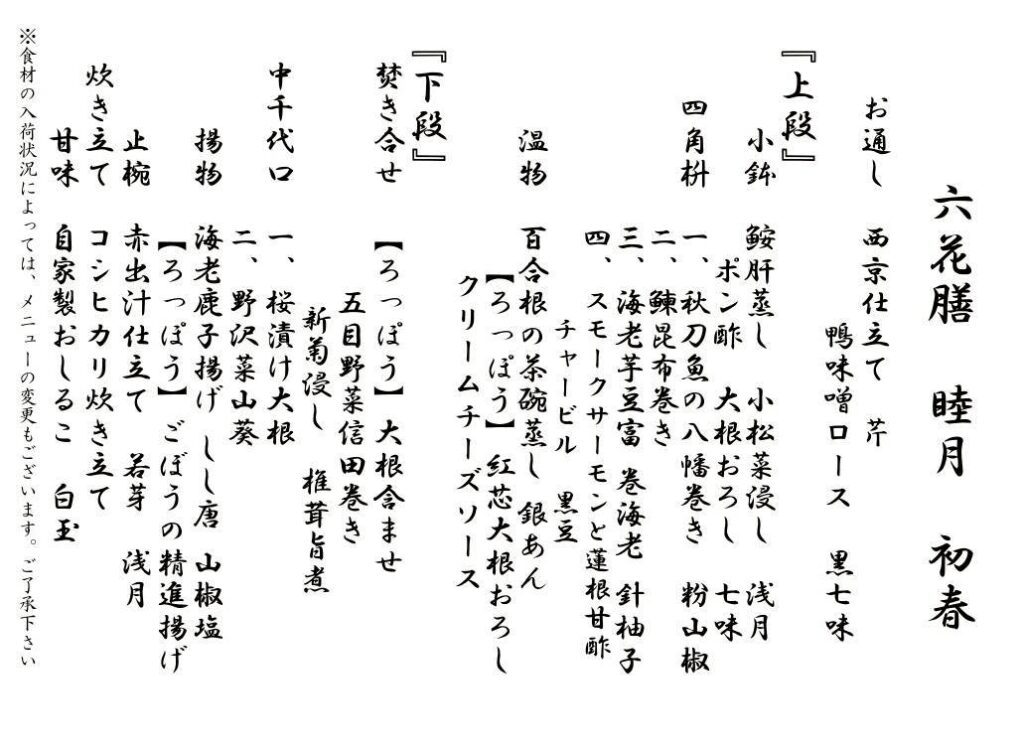 六花膳　睦月　初春
お通し　西京仕立て　芹
鴨味噌ロース　黒七味
『上段』
小鉢　鮟肝蒸し　小松菜浸し　浅月
ポン酢　大根おろし　七味
四角枡　一、秋刀魚の八幡巻き　粉山椒
二、鰊昆布巻き
三、海老芋豆富　巻海老　針柚子
四、スモークサーモンと蓮根甘酢
チャービル　黒豆
温物　百合根の茶碗蒸し　銀あん
【ろっぽう】紅芯大根おろし
クリームチーズソース
『下段』
焚き合せ　【ろっぽう】大根含ませ
五目野菜信田巻き
新菊浸し　椎茸旨煮
中千代口　一、桜漬け大根
二、野沢菜山葵
揚物　海老鹿子揚げ　しし唐　山椒塩
【ろっぽう】ごぼうの精進揚げ
止椀　赤出汁仕立て　若芽　浅月
炊き立て　コシヒカリ炊き立て
甘味　自家製おしるこ　白玉
※食材の入荷状況によっては、メニューの変更もございます。ご了承下さい